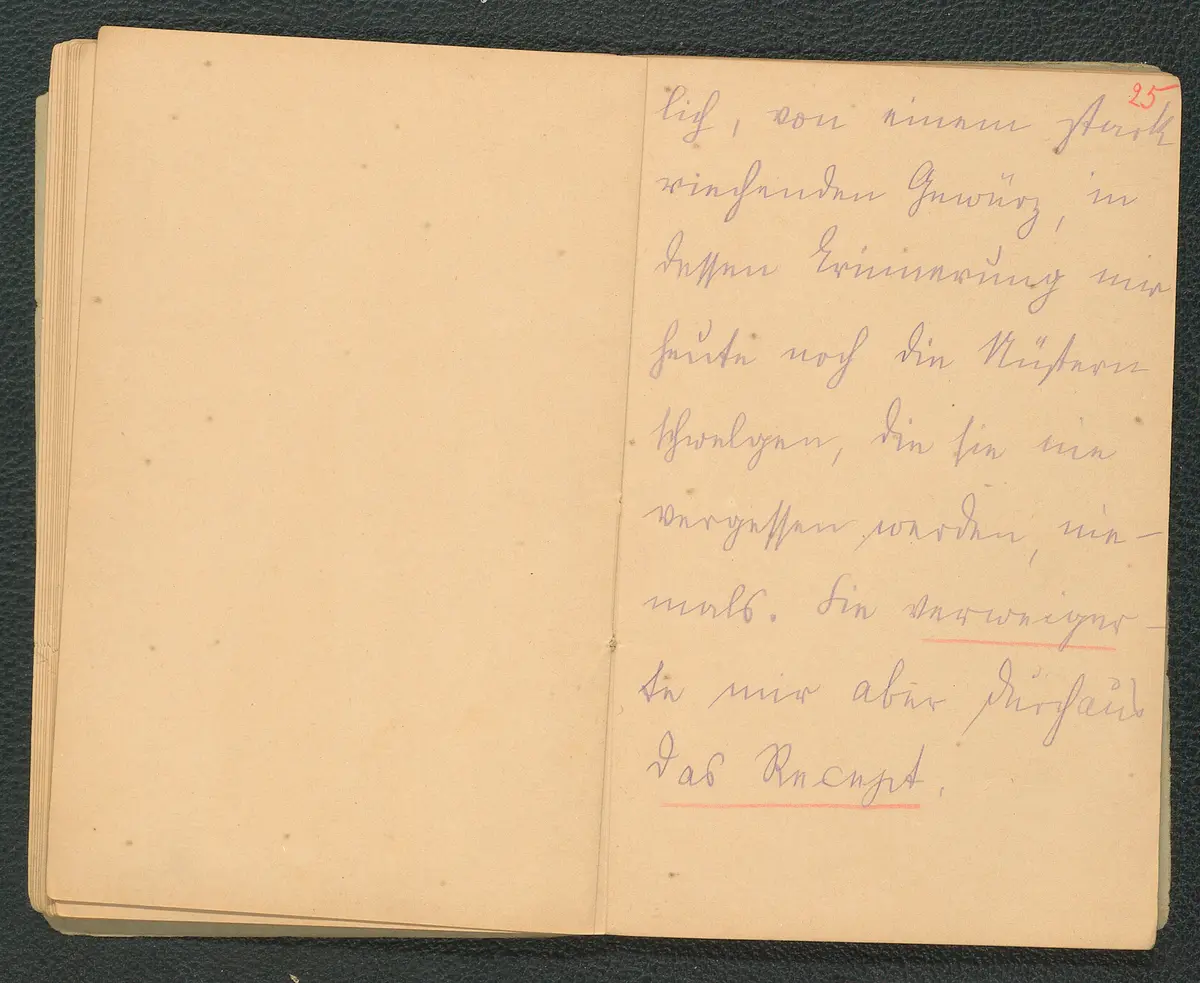 25
lich, von einem stark
riechenden Gewürz, in
dessen Erinnerung mir
heute noch die Nüstern
schwelgen, die sie nie
vergessen werden, nie-
mals. Sie verweiger-
te mir aber durchaus
das Recept.